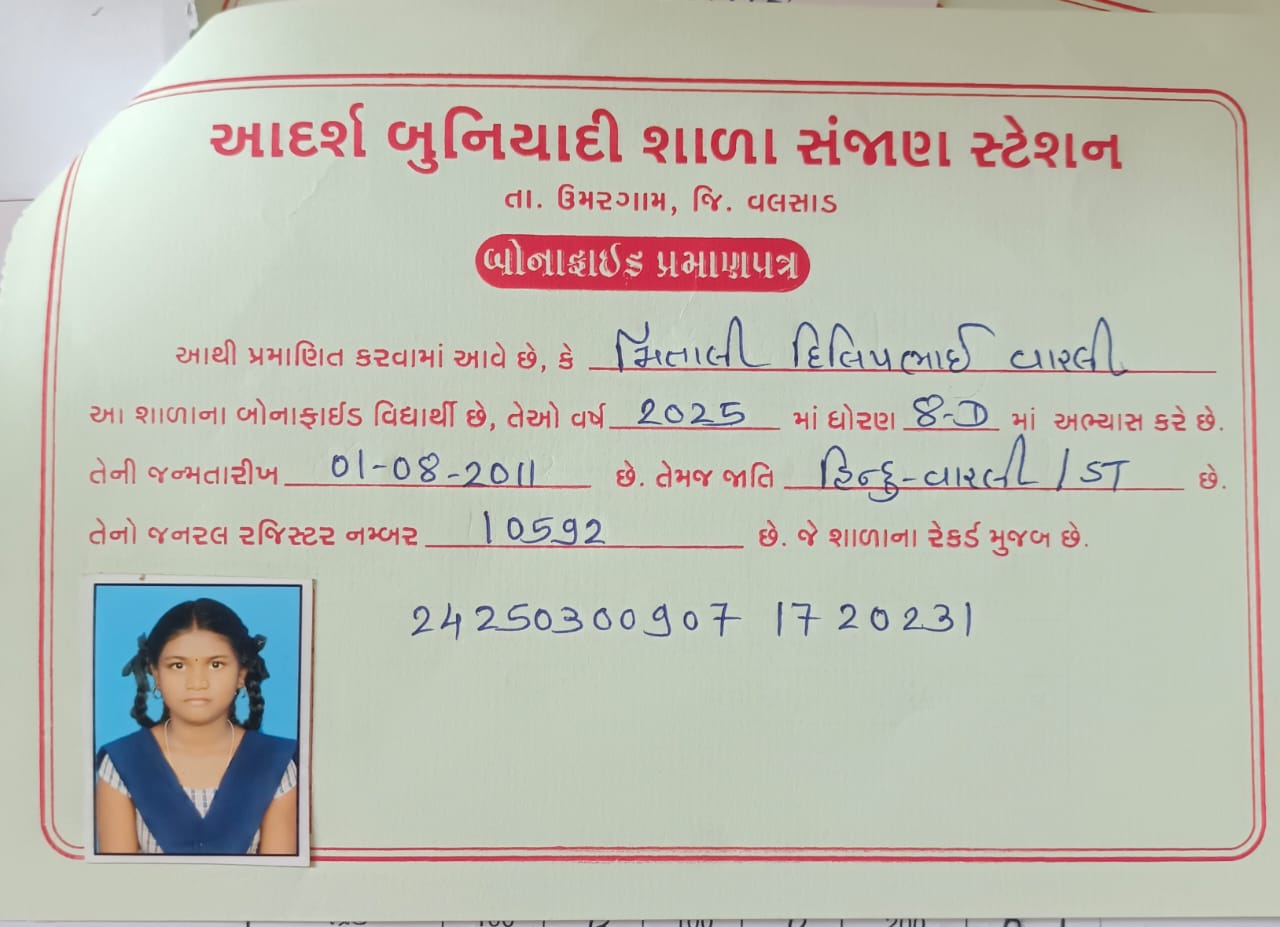 આદર્શ બુનિયાદી શાળા સંજાણ સ્ટેશન
તા. ઉમરગામ, જિ. વલસાડ
બોનાફાઈડ પ્રમાણપત્ર
આથી પ્રમાણિત કરવામાં આવે છે, કે મિતાલી દિલિપભાઈ વારલી
આ શાળાના બોનાફાઈડ વિદ્યાર્થી છે, તેઓ વર્ષ 2025 માં ધોરણ 8-D માં અભ્યાસ કરે છે.
તેની જન્મતારીખ 01-08-2011 છે. તેમજ જાતિ હિન્દુ-વારલી / ST છે.
તેનો જનરલ રજિસ્ટર નમ્બર 10592 છે. જે શાળાના રેકર્ડ મુજબ છે.
24250300907 1720231